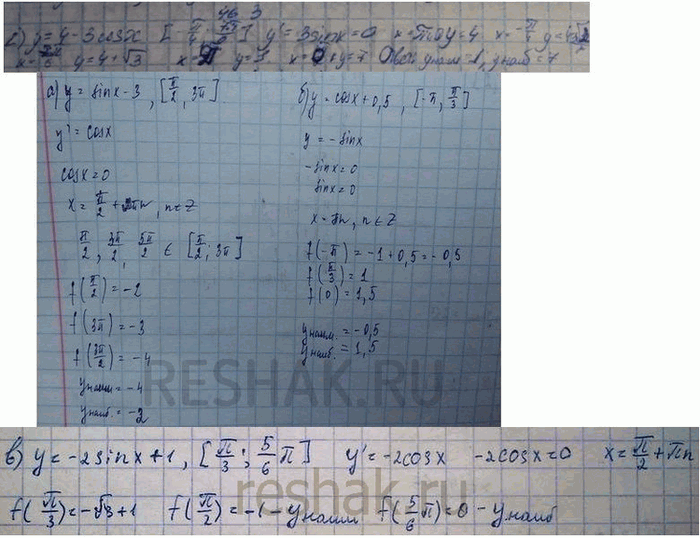 г) y = 4 - 3cosx y' = 3sinx = 0
y = 4 - √3 Ответ: yнаим = 1, yнаиб = 7
а) y = sinx - 3, [π/2, 3π]
y' = cosx
cosx = 0
x = π/2 + πn, n∈Z
π/2, 3π/2, 5π/2 ∈ [π/2; 3π]
f(π/2) = -2
f(3π) = -3
f(3π/2) = -4
yнаим = -4
yнаиб. = -2
б) y = cosx + 0,5, [-π, π/3]
y = -sinx
-sinx = 0
sinx = 0
x = πn, n∈Z
f(-π) = -1 + 0,5 = -0,5
f(π/3) = 1
f(0) = 1,5
yнаим. = -0,5
yнаиб. = 1,5
RESHAK.RU
в) y = -2sinx + 1, [π/3; 5/6 π] y' = -2cosx -2cosx = 0 x = π/2 + πn
reshak.ru
f(π/3) = -√3 + 1 f(π/2) = -1 - yнаим f(5/6 π) = 0 - yнаиб